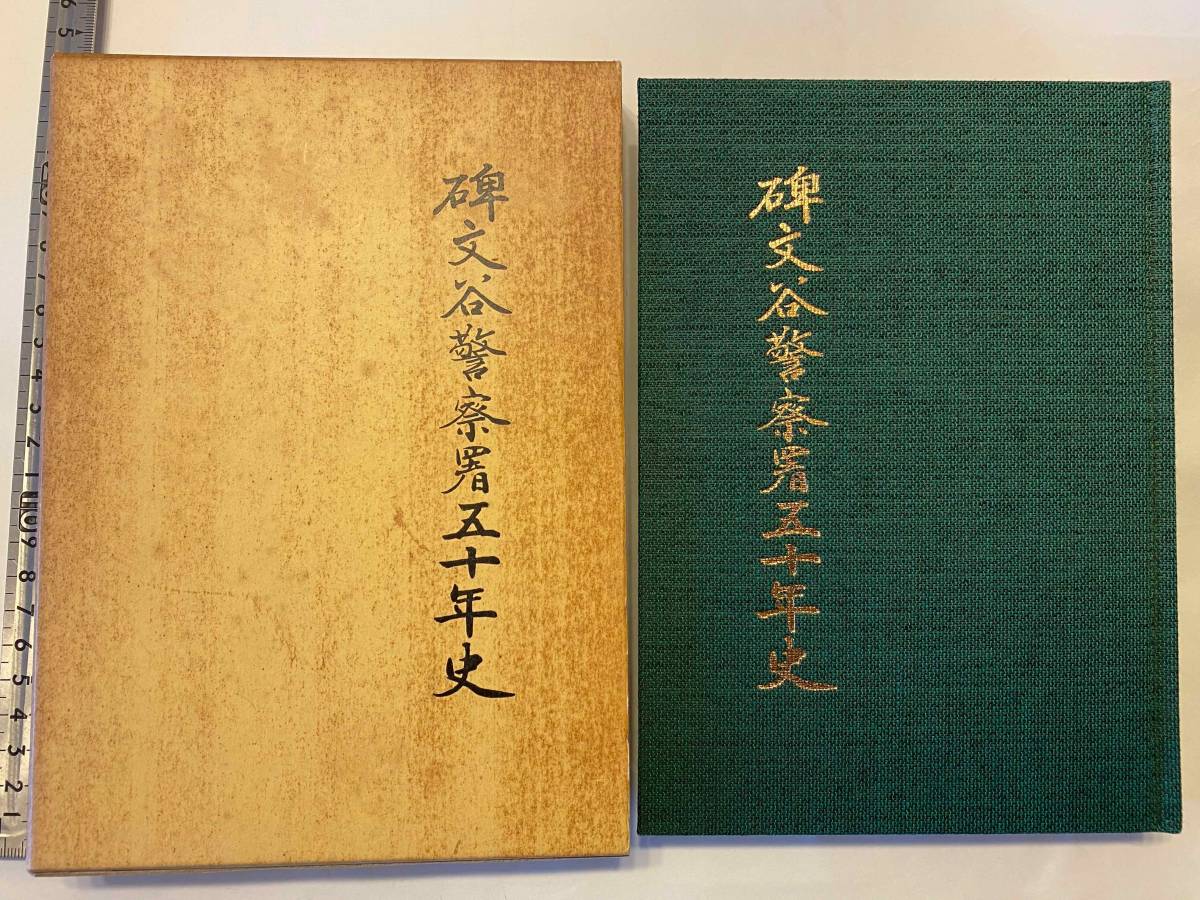 碑文谷警察署五十年史
碑文谷警察署五十年史